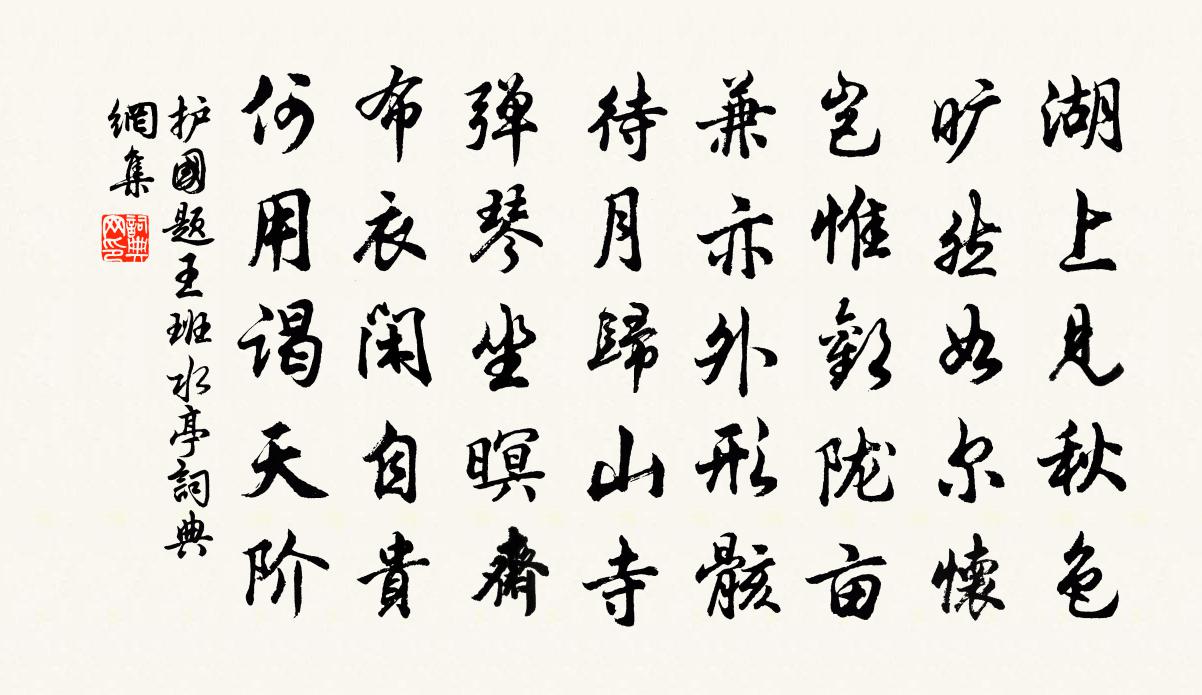 湖上见秋色
旷然如尔懷
岂惟歡陇亩
兼亦外形骸
待月歸山寺
弹琴坐暝齋
布衣闲自貴
何用谒天阶
护國题王班水亭詞典
網集
詞典
网印